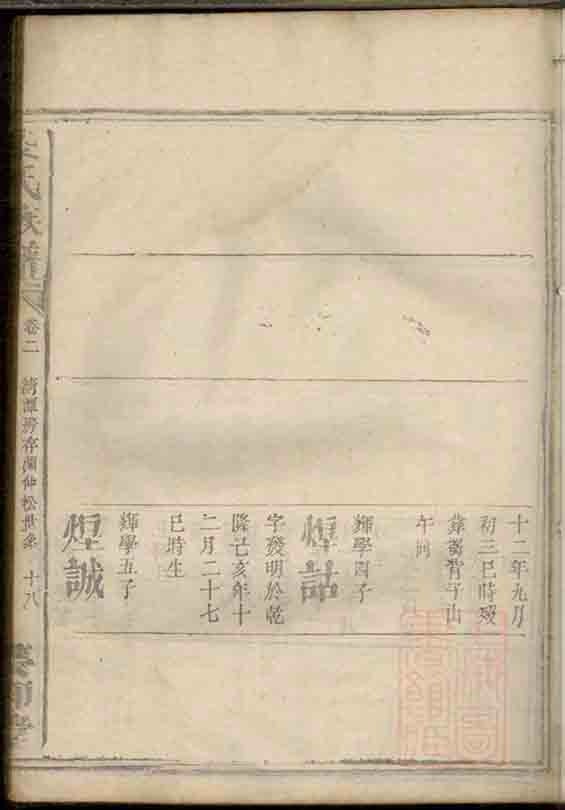 十二年九月
初三巳時歿
葬 背子山
午向
煌話
輝學四子
字發明於乾
隆己亥年十
二月二十七
巳時生
煌誠
輝學五子
氏族譜
卷二
清潭房存蘭仲松世系
十八
堂